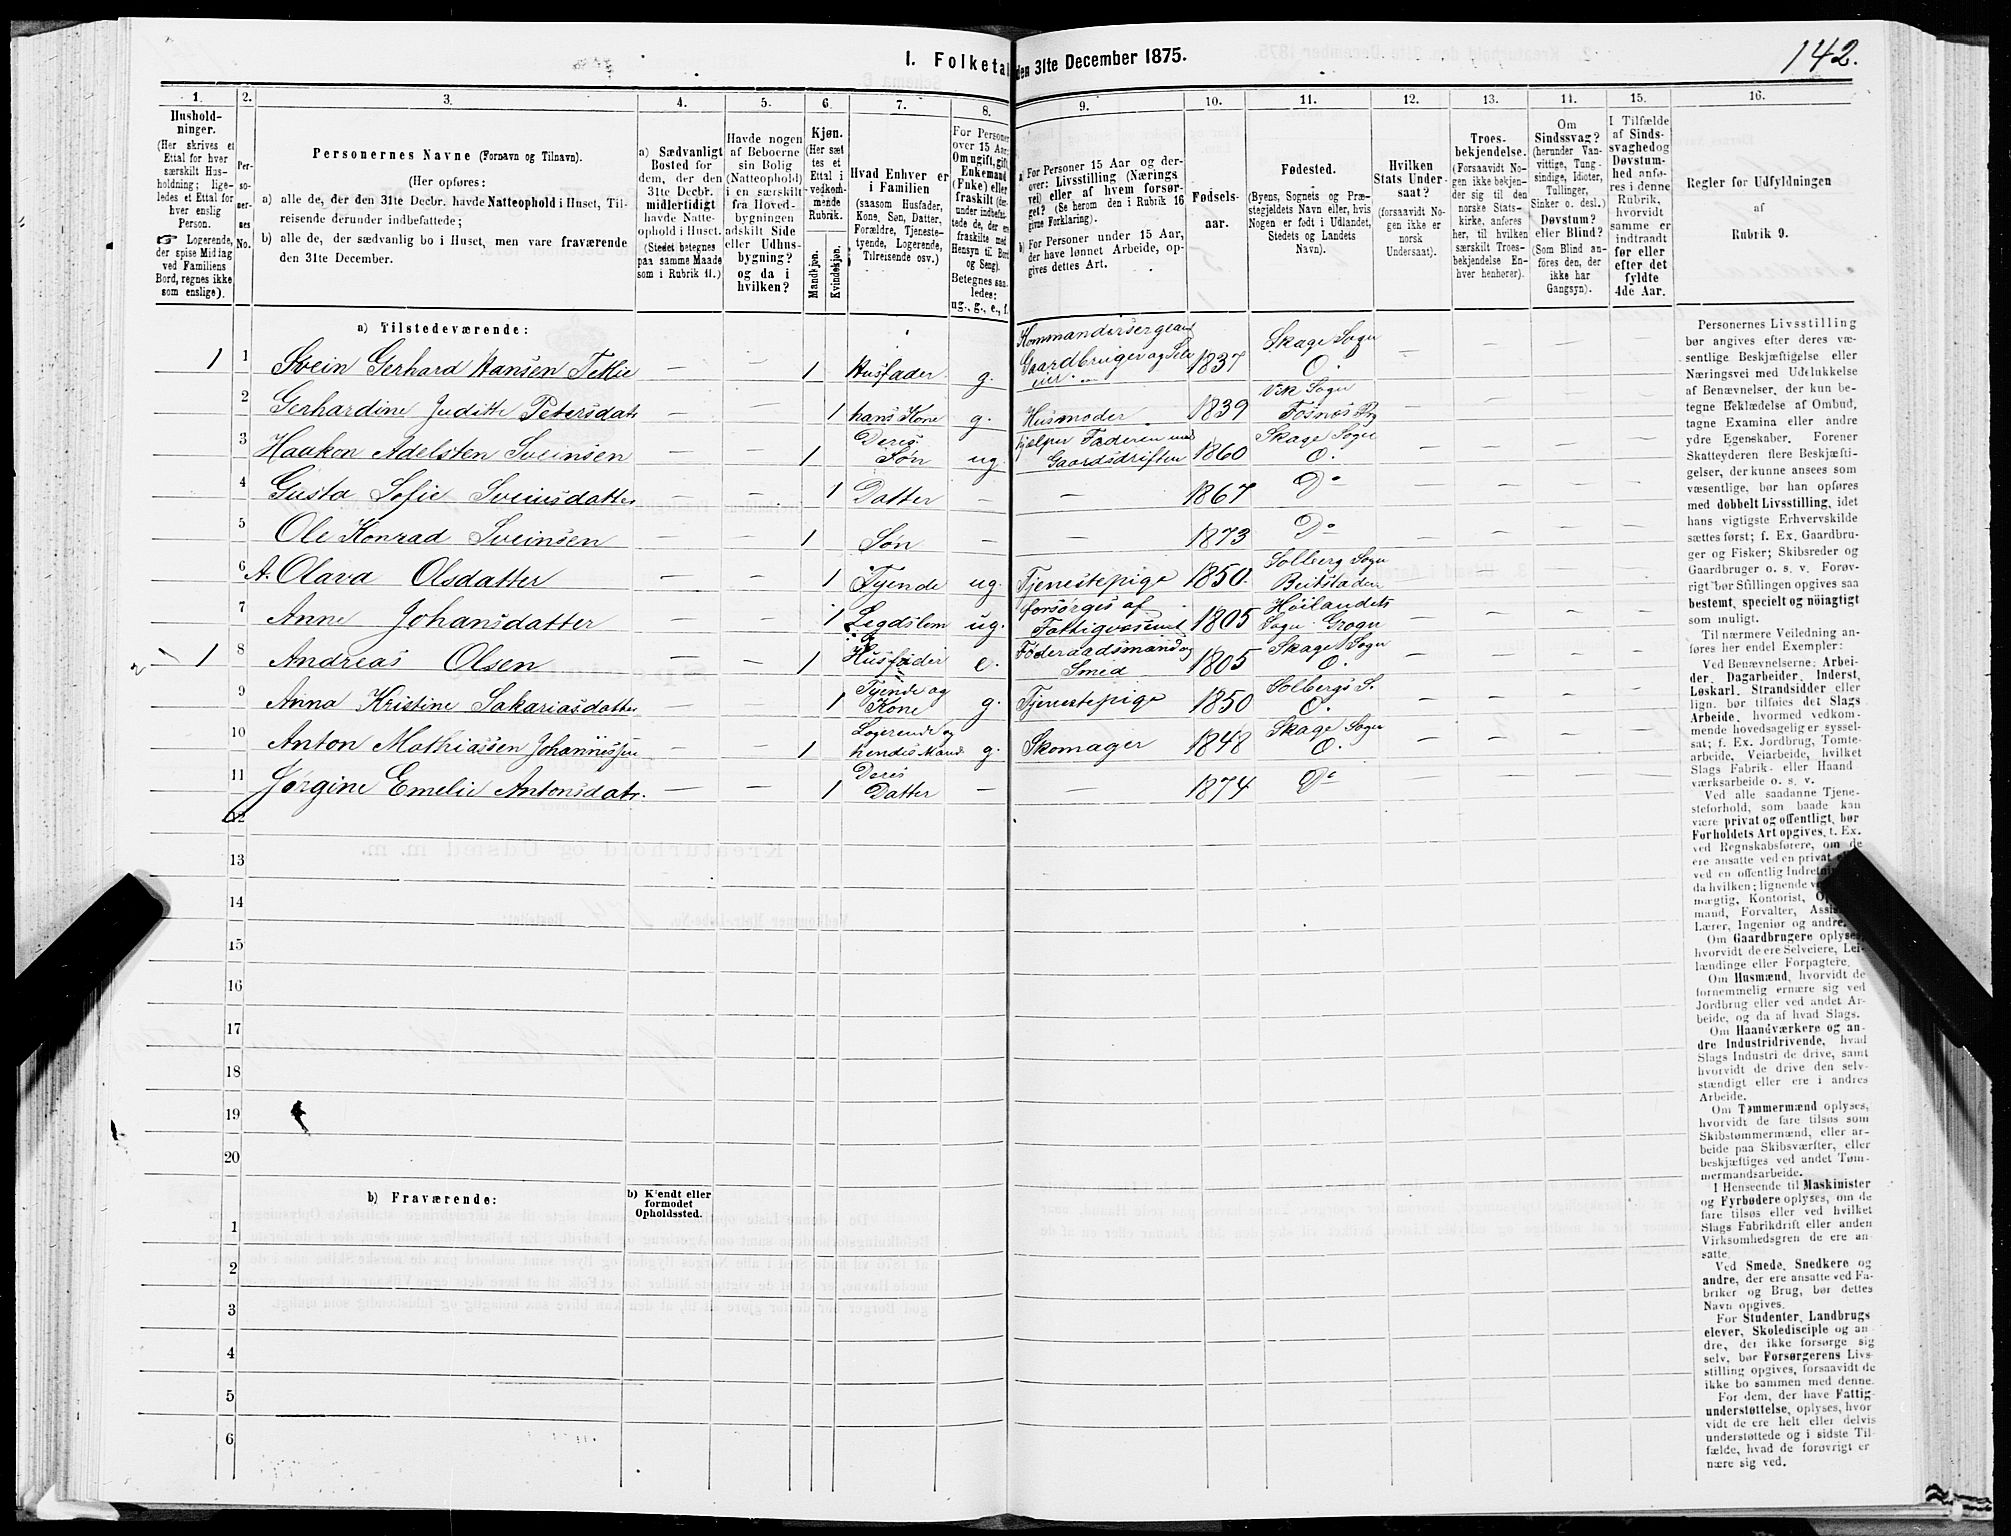 142.
I. Folketal den 31te December 1875.
1. 2. 3. 4. 5. 6. 7. 8. 9. 10. 11. 12. 13. 14. 15. 16.
Husholdninger.
(Her skrives et
Ettal for hver
særskilt Husholdning; ligeledes
et Ettal for
hver enslig
Person.
☞ Logerende,
der spise Middag
ved Familiens
Bord, regnes ikke
som enslige).
Personernes No.
Personernes Navne (Fornavn og Tilnavn).
(Her opføres:
a) alle de, der den 31te Decbr. havde Natteophold i Huset, Tilreisende derunder indbefattede;
b) alle de, der sædvanlig bo i Huset, men vare fraværende
den 31te December.
a) Sædvanligt
Bosted for
dem, der den
31te Decbr.
midlertidigt
havde Natteophold
i Huset.
(Stedet betegnes
paa samme Maade
som i Rubrik 11.)
Havde nogen
af Beboerne
sin Bolig
(Natteophold)
i en særskilt
fra Hovedbygningen
adskilt Side
eller Udhusbygning?
og da i
hvilken?
Kjøn.
(Her sættes
et
Ettal i
vedkommende
Rubrik.
Mandkjøn.
Kvindekjøn.
Hvad Enhver er
i Familien
(saasom Husfader,
Kone, Søn, Datter,
Forældre, Tjenestetyende,
Logerende,
Tilreisende osv.)
For Personer
over 15 Aar:
Om ugift, gift,
Enkemand
(Enke) eller
fraskilt
Betegnes saaledes:
ug., g., e., f.
a) For Personer 15 Aar og derover:
Livsstilling (Næringsvei)
eller af hvem forsørget?
(Se herom den i Rubrik 16
givne Forklaring).
b) For Personer under 15 Aar,
der have lønnet Arbeide, opgives
dettes Art.
Fødselsaar.
Fødested.
(Byens, Sognets og Præstegjeldets
Navn eller, hvis
Nogen er født i Udlandet,
Stedets og Landets
Navn).
Hvilken
Stats Undersaat?
(forsaavidt Nogen
ikke er
norsk
Undersaat).
Troesbekjendelse.
(Forsaavidt Nogen
ikke bekjender
sig til den
norske Statskirke,
anføres
her, til hvilken
særskilt Troesbekjendelse
Enhver
henhører).
Om
Sindssvag?
(herunder Vanvittige,
Tungsindige,
Idioter,
Tullinger,
Sinker o. desl.)
Døvstum?
eller Blind?
(Som Blind anføres
den, der
ikke har
Gangsyn).
I Tilfælde
af Sindssvaghed
og
Døvstumhed
anføres
i denne
Rubrik,
hvorvidt
samme er
indtraadt
før eller
efter det
fyldte
4de Aar.
Regler for Udfyldningen
af
Rubrik 9.
a) Tilstedeværende:
1 1 Svein Gerhard Hansen — — 1 Husfader g. Kommandersergeant Gaardbruger og 1837 Skage Sogn O. — — — —
2 Gerhardine Juditte Petersdatr — — 1 hans Kone g. Husmoder 1839 Vik Sogn Fosnes — — — —
3 Haakon Adelsten Sveinsen — — 1 Deres Søn ug. hjælper Faderen med Gaardsdriften 1860 Skage Sogn O. — — — —
4 Gusta Sofie Sveinsdatter — — 1 Datter — — 1867 Do — — — —
5 Ole Konrad Sveinsen — — 1 Søn — — 1873 Do — — — —
6 A. Olava Olsdatter — — 1 Tyende ug. Tjenestepige 1850. Solberg Sogn Beitstaden — — — —
7 Anne Johansdatter — — 1 Legdslem ug. forsørges af Fattigvæsenet 1805 Høilandets Sogn Grogn — — — —
2 1 8 Andreas Olsen — — 1 Husfader e. Føderaadsmand og Smed 1805 Skage Sogn O. — — — —
9 Anna Kristine Sakariasdatter — — 1 Tyende og Kone g. Tjenestepige 1850 Solbergs S. O. — — — —
10 Anton Mathiassen Johannessen — — 1 Logerende og hendes Mand g. Skomager 1848 Skage Sogn O. — — — —
11 Jørgine Emelie Antonsdatr. — — 1 Deres Datter — — 1874 Do — — — —
12
13
14
15
16
17
18
19
20
b) Fraværende:
b) Kjendt eller
formodet
Opholdssted.
1
2
3
4
5
6
Personernes Livsstilling
bør angives efter deres væsentlige
Beskjæftigelse eller
Næringsvei med Udelukkelse
af Benævnelser, der kun betegne
Beklædelse af Ombud,
tagne Examina eller andre
ydre Egenskaber. Forener
Skatteyderen flere Beskjæftigelser,
der kunne ansees som
væsentlige, bør han opføres
med dobbelt Livsstilling, idet
hans vigtigste Erhvervskilde
sættes først; f. Ex. Gaardbruger
og Fisker; Skibsreder og
Gaardbruger o. s. v. Forøvrigt
bør Stillingen opgives saa
bestemt, specielt og nöiagtigt
som muligt.
Til nærmere Veiledning anføres
her endel Exempler:
Ved Benævnelserne: Arbeider,
Dagarbeider, Inderst,
Løskarl, Strandsidder eller
lign. bør tilføies det Slags
Arbeide, hvormed vedkommende
hovedsagelig er sysselsat;
f. Ex. Jordbrug, Tomtearbeide,
Veiarbeide, hvilket
Slags Fabrik- eller Haandværksarbeide
o. s. v.
Ved alle saadanne Tjenesteforhold,
som baade kan
være privat og offentligt, bør
Forholdets Art opgives, t. Ex.
ved Regnskabsførere, om de
ere ansatte ved en privat
ved en offentlig
da hvilken; lignende
mægtig, Kontorist,
mand, Forvalter,
Lærer, Ingeniør og andre.
Om Gaardbrugere oplyses,
hvorvidt de ere Selveiere, Leilændinge
eller Forpagtere.
Om Husmænd, hvorvidt de
fornemmelig ernære sig ved
Jordbrug eller ved andet Arbeide,
og da af hvad Slags.
Om Haandværkere og andre
Industridrivende, hvad
Slags Industri de drive, samt
hvorvidt de drive den selvstændigt
eller ere i andres
Arbeide.
Om Tømmermænd oplyses,
hvorvidt de fare tilsøs som
Skibstømmermænd, eller arbeide
paa Skibsværfter, eller
beskjæftiges ved andet Tømmermandsarbeide.
I Henseende til Maskinister
og Fyrbødere oplyses, om de
fare tilsøs eller ved hvilket
Slags Fabrikdrift eller anden
Virksomhedsgren de ere ansatte.
Ved Smede, Snedkere og
andre, der ere ansatte ved Fabriker
og Brug, bør dettes
Navn opgives.
For Studenter, Landbrugselever,
Skoledisciple og andre,
der ikke forsørge sig
selv, bør Forsørgerens Livsstilling
opgives, forsaavidt de
ikke bo sammen med denne.
For dem, der have Fattigunderstøttelse,
oplyses, hvorvidt
de ere helt eller delvis
understøttede og i sidste Tilfælde,
hvad de forøvrigt ernære
sig ved.